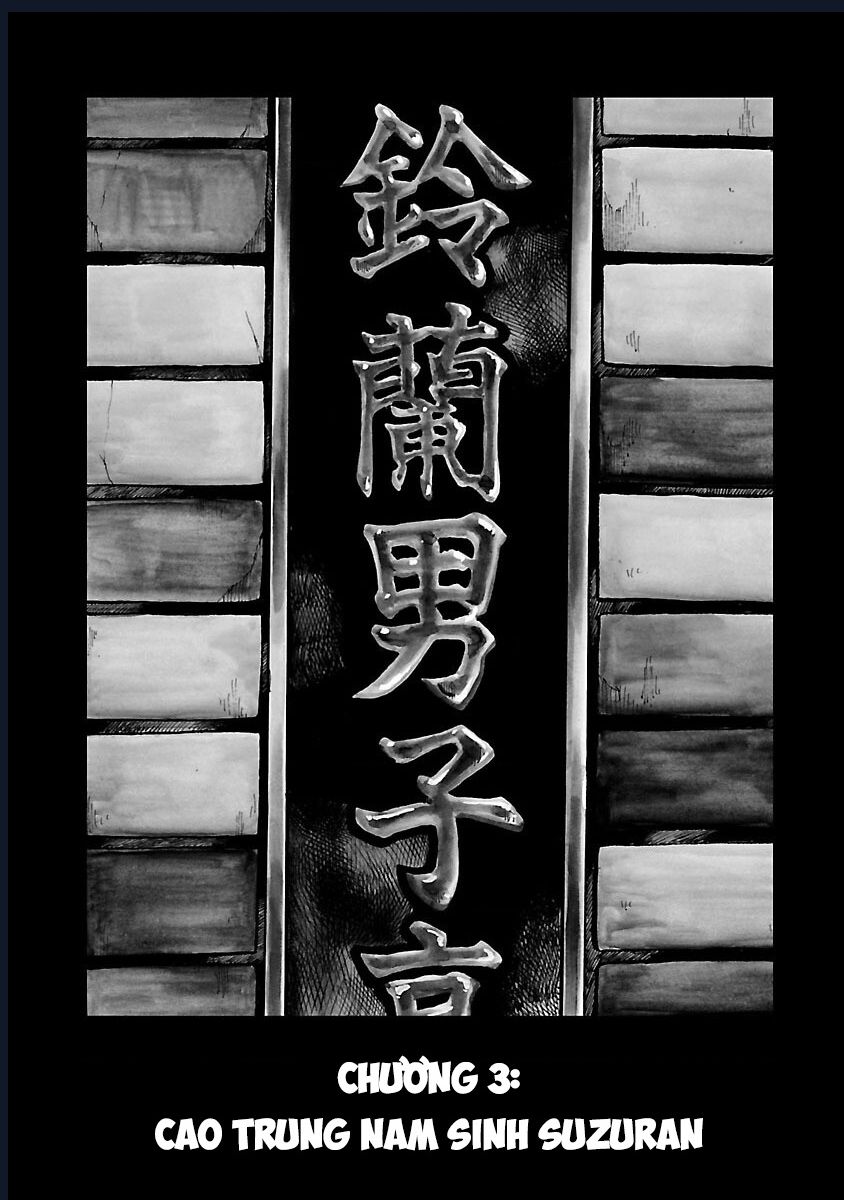 鈴蘭男子高
CHƯƠNG 3:
CAO TRUNG NAM SINH SUZURAN